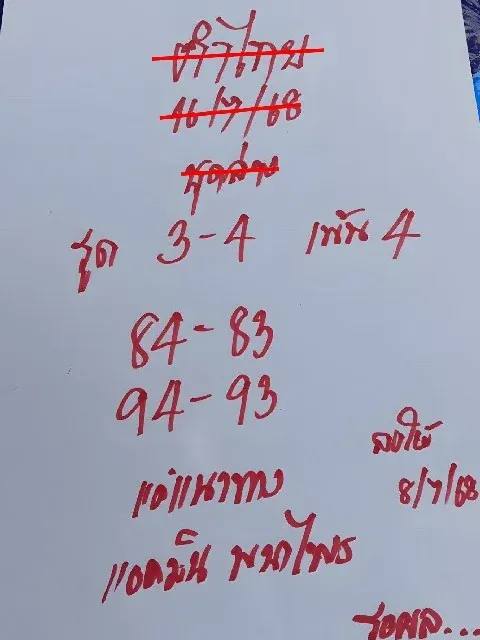 ทำไทย
16/7/68
ชุดล่าง
รูด 3-4 เน้น 4
84-83
94-93
แค่แนวทาง
ลงให้
8/7/68
แอดมิน พนาไพร
รอผล...